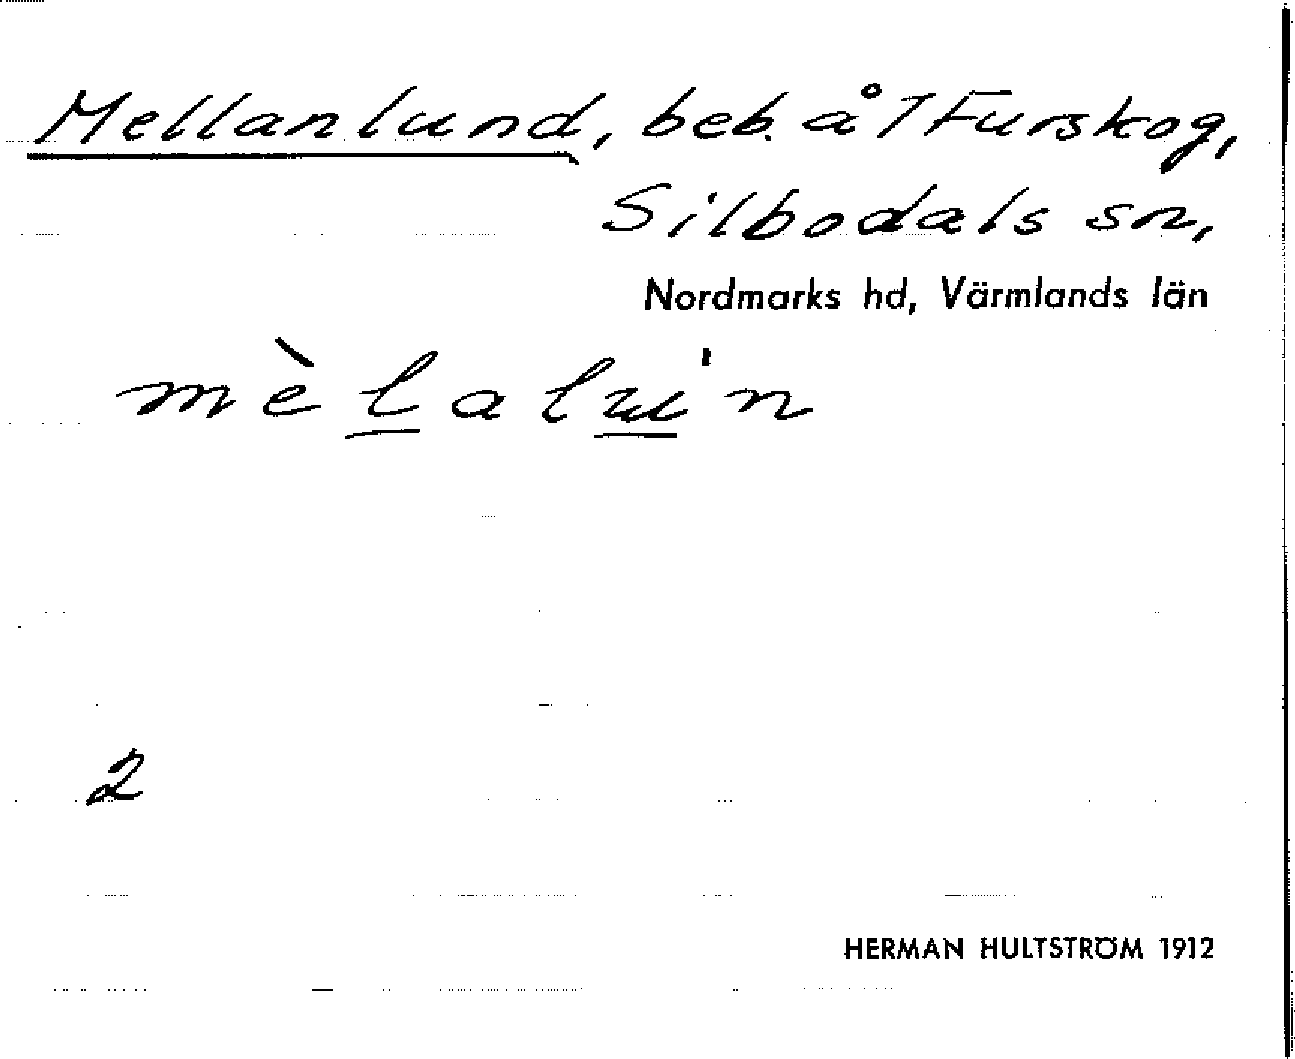 Mellanlund, beb. å T Furskog,
Silbodals sn,
Nordmarks hd, Värmlands län
mèlaluı'n
2
HERMAN HULTSTRÖM 1912